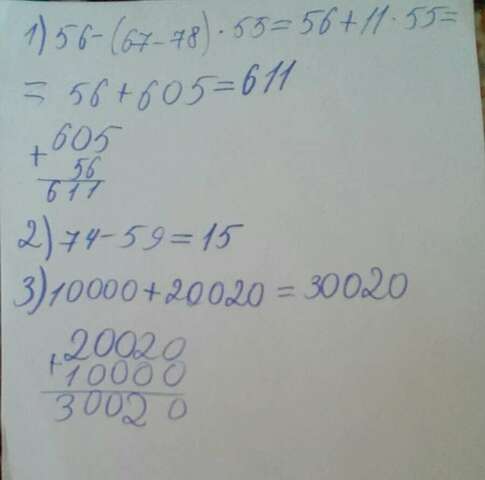 1) 56-(67-78)·55=56+11·55=
= 56+605=611
+ 605
56
611
2) 74-59=15
3) 10000+20020=30020
+ 20020
10000
30020